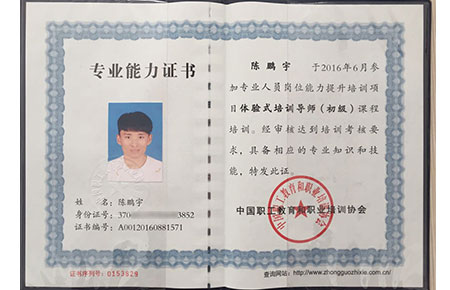 专业能力证书
姓 名：陈鹏宇
身份证号：370 3852
证书编号：A00120160881571
证书序列号：0153829
陈鹏宇 于2016年6月参
加专业人员岗位能力提升培训项
目体验式培训导师（初级）课程
培训。经审核达到培训考核要
求，具备相应的专业知识和技
能，特发此证。
中国职工教育和职业培训协会
中国职工教育和职业培训协会
查询网站：http://www.zhongguozhixie.com.cn/